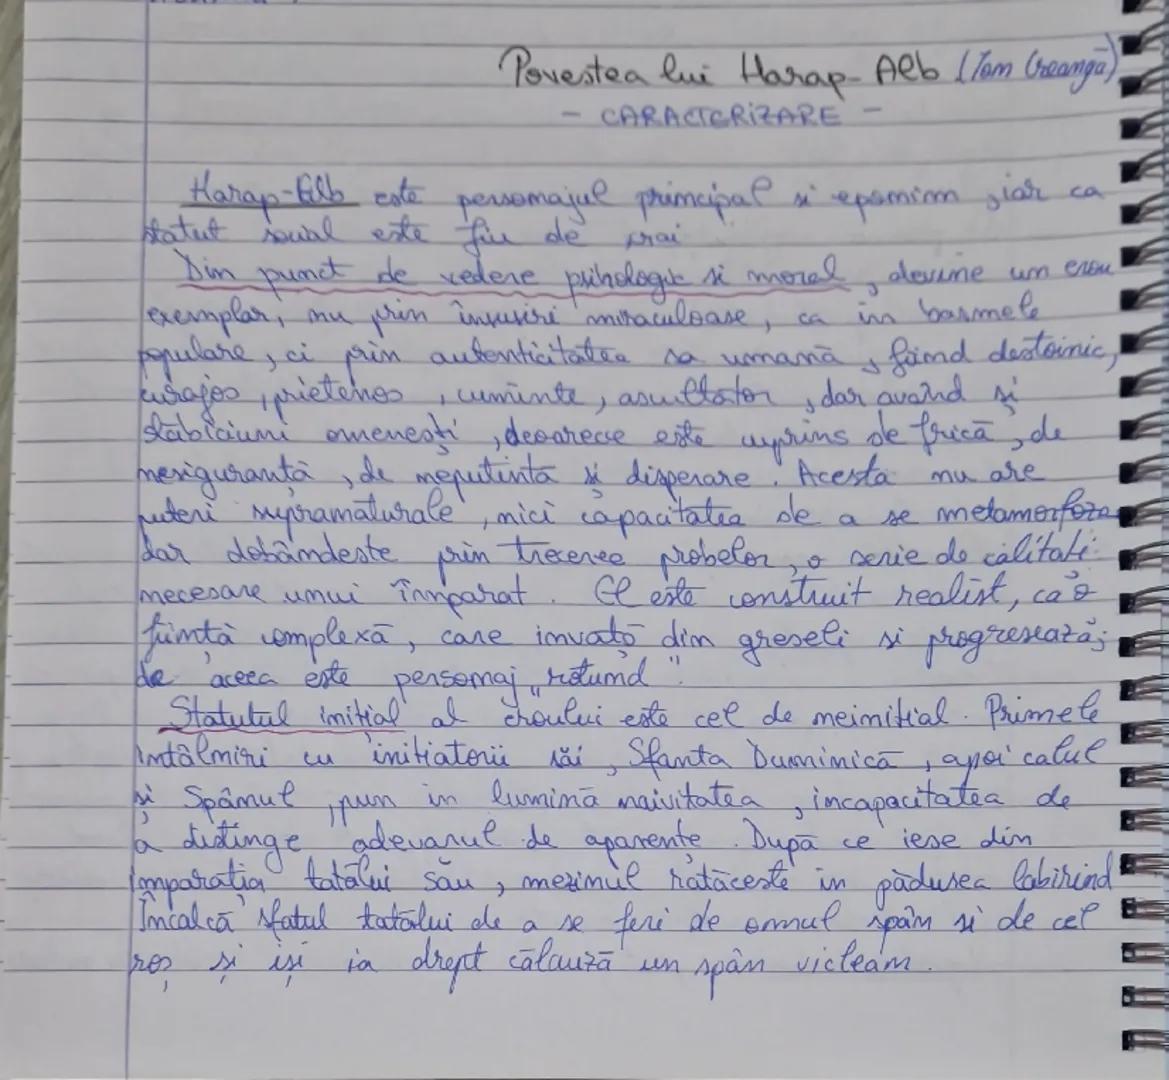 Povestea lui Harap-Alb (Ion Creangă)
- CARACTERIZARE -
Harap-Alb este personajul principal si eponim, iar ca
statut social este fiu de crai
Din punct de vedere psihologic si moral, devine un erou
exemplar, nu prin însusiri miraculoase, ca in basmele
populare, ci prin autenticitatea sa umană, fiind destoinic,
curajos, prietenos, cuminte, ascultator, dar avand si
slăbiciuni omenesti, deoarece este cuprins de frică, de
nesiguranță, de neputinta și disperare. Acesta nu are
puteri supranaturale, nici capacitatea de a se metamorfoza
dar dobândeste prin trecerea probelor, o serie de calitati
necesare unui împarat. El este construit realist, ca o
ființă complexă, care invață din greseli si progresează;
de aceea este personaj "rotund".
Statutul inițial al eroului este cel de neinitiat. Primele
întâlniri cu initiatorii săi, Sfanta Duminică, apoi calul
și Spânul, pun in lumină naivitatea, incapacitatea de
a distinge adevarul de aparențe. După ce iese din
împarația tatălui său, mezinul rătăceste in pădurea labirind
Încalcă sfatul tatălui de a se feri de omul spân si de cel
roș și iși ia drept călauză un spân viclean.